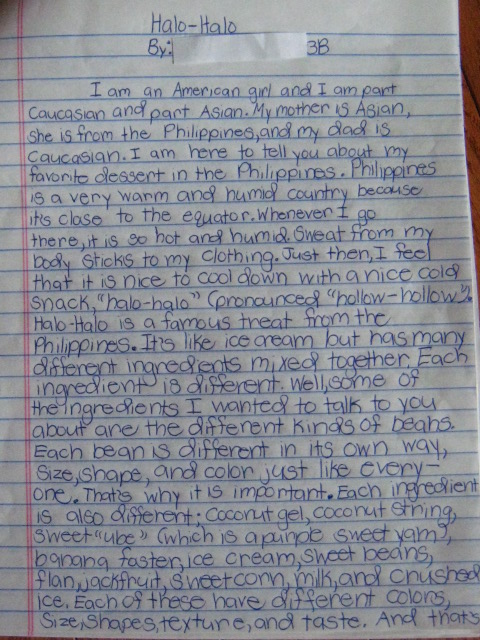 Halo-Halo
By: 3B
I am an American girl and I am part
Caucasian and part Asian. My mother is Asian,
she is from the Philippines, and my dad is
Caucasian. I am here to tell you about my
favorite dessert in the Philippines. Philippines
is a very warm and humid country because
its close to the equator. Whenever I go
there, it is so hot and humid. Sweat from my
body sticks to my clothing. Just then, I feel
that it is nice to cool down with a nice cold
snack, "halo-halo" (pronounced "hollow-hollow").
Halo-Halo is a famous treat from the
Philippines. It's like ice cream but has many
different ingredients mixed together. Each
ingredient is different. Well, some of
the ingredients I wanted to talk to you
about are the different kinds of beans.
Each bean is different in its own way,
size, shape, and color just like every-
one. That's why it is important. Each ingredient
is also different; coconut gel, coconut string,
sweet "ube" (which is a purple sweet yam),
banana faster, ice cream, sweet beans,
flan, jackfruit, sweet corn, milk, and crushed
ice. Each of these have different colors,
size, shapes, texture, and taste. And that's